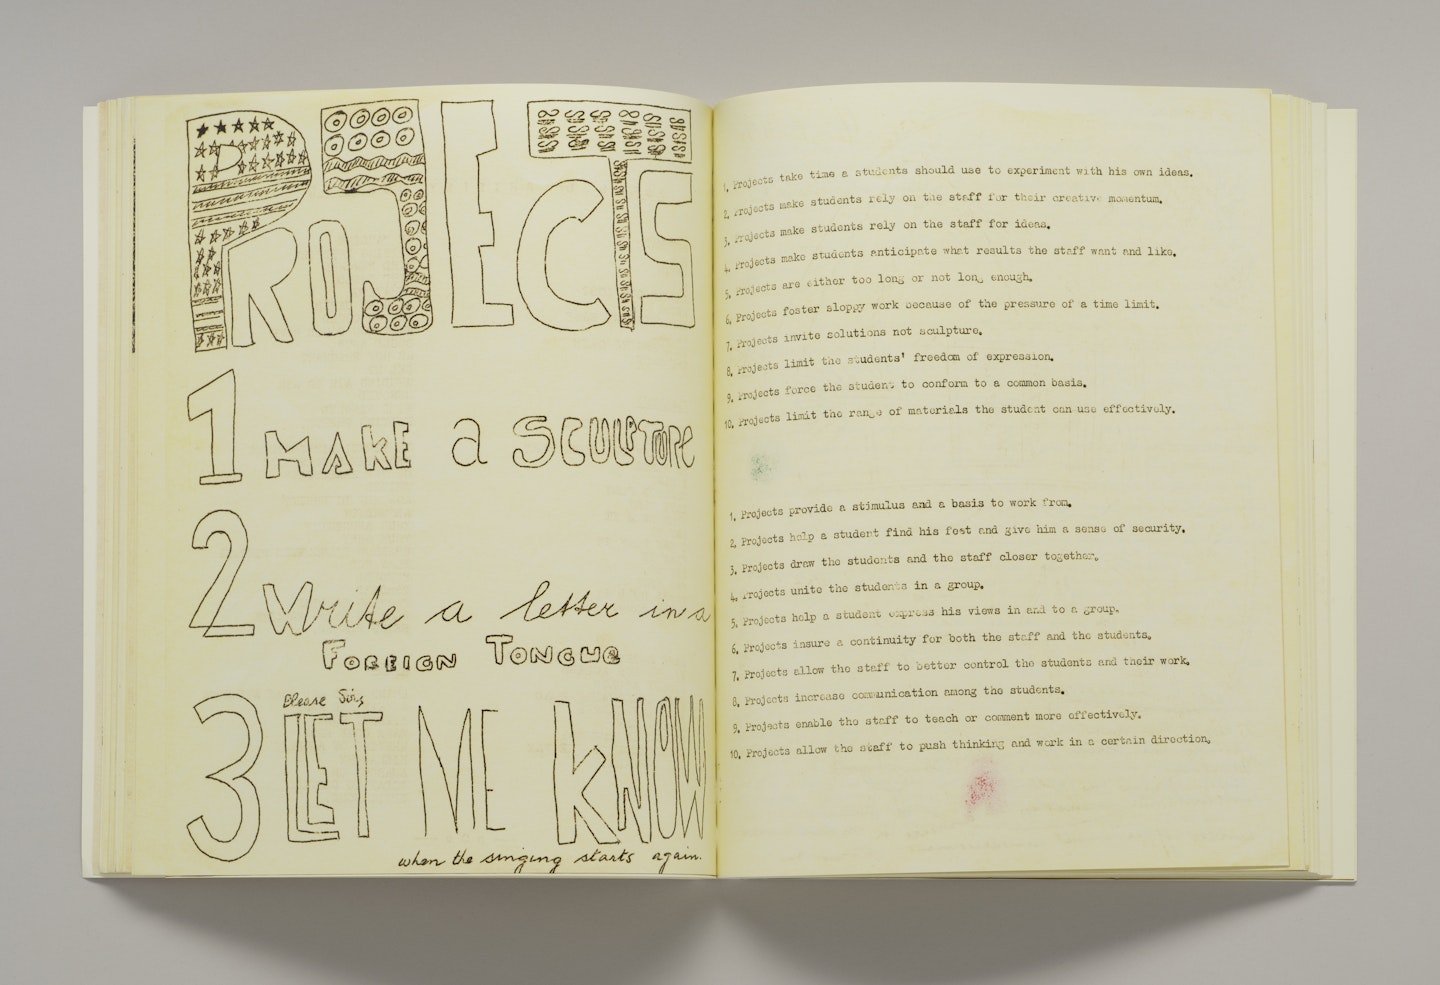 PROJECTS
1 MAKE a SCULPTURE
2 Write a letter in a
FOREIGN TONGUE
Please Sing
3 LET ME KNOW
when the singing starts again.
1. Projects take time a students should use to experiment with his own ideas.
2. Projects make students rely on the staff for their creative momentum.
3. Projects make students rely on the staff for ideas.
4. Projects make students anticipate what results the staff want and like.
5. Projects are either too long or not long enough.
6. Projects foster sloppy work because of the pressure of a time limit.
7. Projects invite solutions not sculpture.
8. Projects limit the students' freedom of expression.
9. Projects force the student to conform to a common basis.
10. Projects limit the range of materials the student can use effectively.
1. Projects provide a stimulus and a basis to work from.
2. Projects help a student find his feet and give him a sense of security.
3. Projects draw the students and the staff closer together.
4. Projects unite the students in a group.
5. Projects help a student express his views in and to a group.
6. Projects insure a continuity for both the staff and the students.
7. Projects allow the staff to better control the students and their work.
8. Projects increase communication among the students.
9. Projects enable the staff to teach or comment more effectively.
10. Projects allow the staff to push thinking and work in a certain direction.